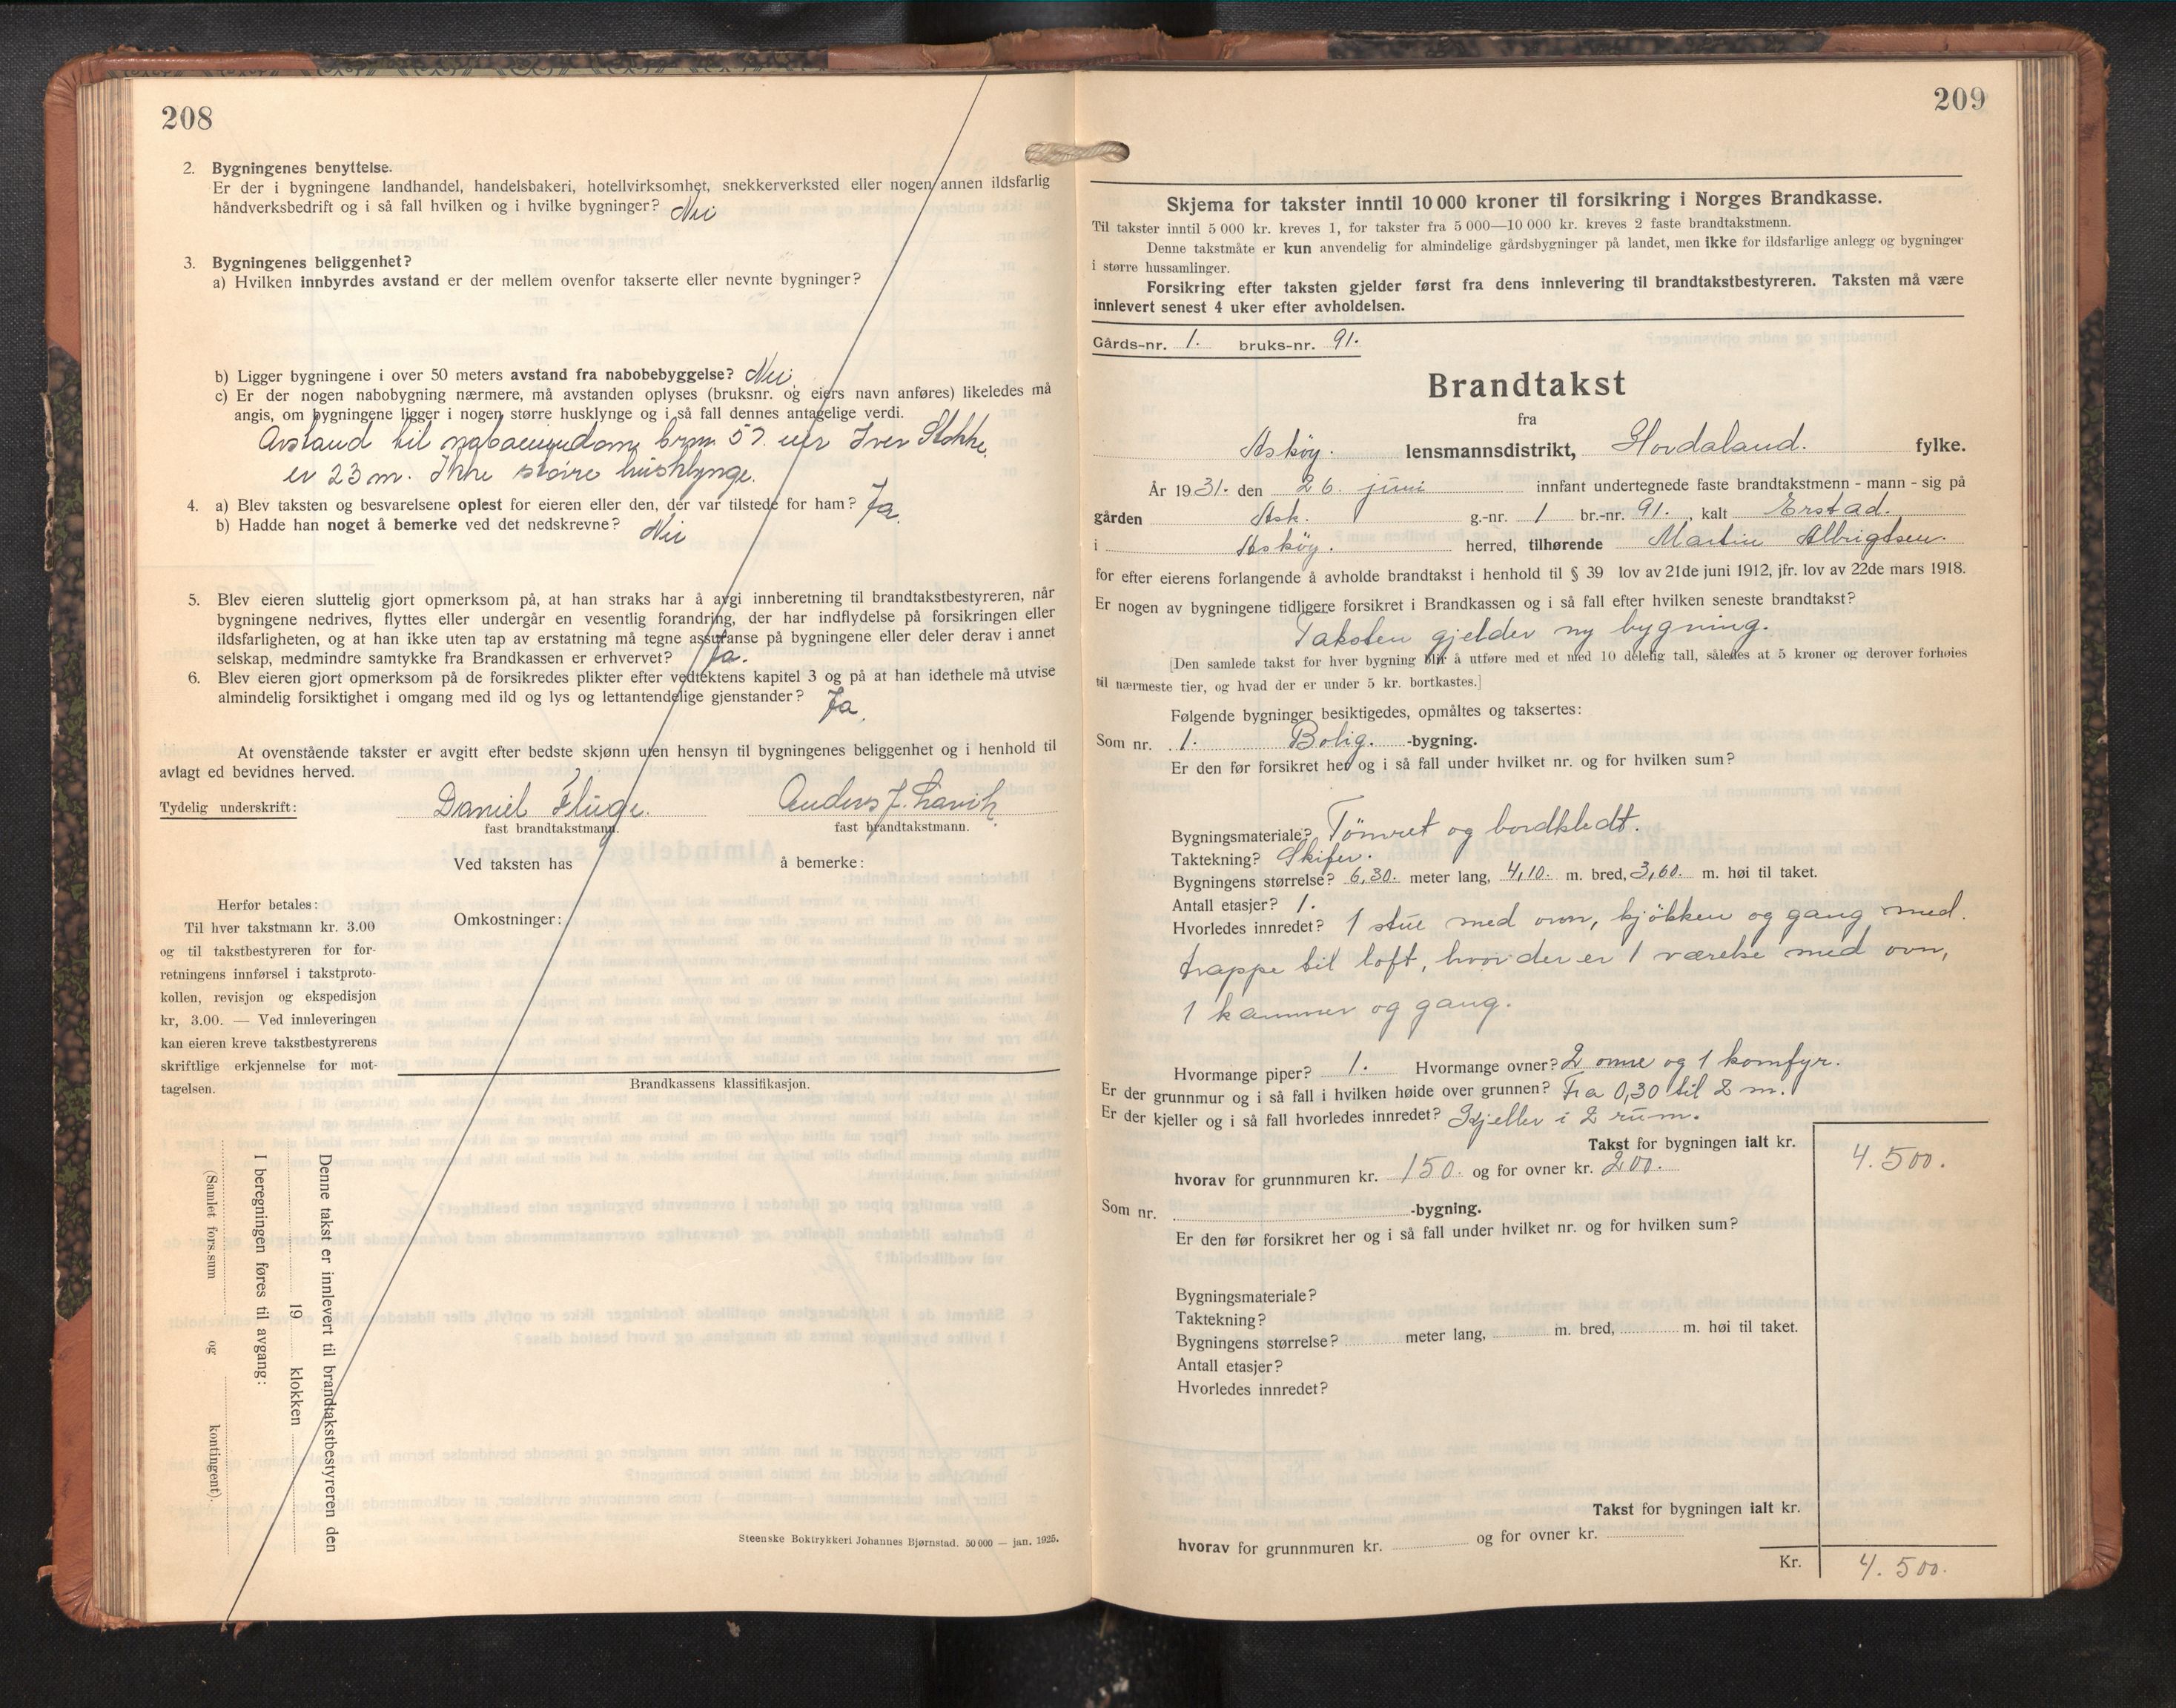 208
2. Bygningenes benyttelse.
Er der i bygningene landhandel, handelsbakeri, hotellvirksomhet, snekkerverksted eller nogen annen ildsfarlig
håndverksbedrift og i så fall hvilken og i hvilke bygninger? Nei
3. Bygningenes beliggenhet?
a) Hvilken innbyrdes avstand er der mellem ovenfor takserte eller nevnte bygninger?
b) Ligger bygningene i over 50 meters avstand fra nabobebyggelse? Nei.
c) Er der nogen nabobygning nærmere, må avstanden oplyses (bruksnr. og eiers navn anføres) likeledes må
angis, om bygningene ligger i nogen større husklynge og i så fall dennes antagelige verdi.
Avstand til naboeiendom brnr. 57. eier Iver Stokke,
er 23 m. Ikke større husklynge.
4. a) Blev taksten og besvarelsene oplest for eieren eller den, der var tilstede for ham? Ja.
b) Hadde han noget å bemerke ved det nedskrevne? Nei
5. Blev eieren sluttelig gjort opmerksom på, at han straks har å avgi innberetning til brandtakstbestyreren, når
bygningene nedrives, flyttes eller undergår en vesentlig forandring, der har indflydelse på forsikringen eller
ildsfarligheten, og at han ikke uten tap av erstatning må tegne assuranse på bygningene eller deler derav i annet
selskap, medmindre samtykke fra Brandkassen er erhvervet? Ja.
6. Blev eieren gjort opmerksom på de forsikredes plikter efter vedtektens kapitel 3 og på at han idethele må utvise
almindelig forsiktighet i omgang med ild og lys og lettantendelige gjenstander? Ja.
At ovenstående takster er avgitt efter bedste skjønn uten hensyn til bygningenes beliggenhet og i henhold til
avlagt ed bevidnes herved.
Tydelig underskrift: Daniel Fluge. Anders J.
fast brandtakstmann. fast brandtakstmann.
Ved taksten has å bemerke:
Omkostninger:
Herfor betales:
Til hver takstmann kr. 3.00
og til takstbestyreren for for-
retningens innførsel i takstproto-
kollen, revisjon og ekspedisjon
kr, 3.00. — Ved innleveringen
kan eieren kreve takstbestyrerens
skriftlige erkjennelse for mot-
tagelsen.
Brandkassens klassifikasjon.
Denne takst er innlevert til brandtakstbestyreren den
19 klokken
I beregningen føres til avgang:
(Samlet fors.sum og kontingent).
Steenske Boktrykkeri Johannes Bjørnstad. 50 000 — jan. 1925.
209
Skjema for takster inntil 10 000 kroner til forsikring i Norges Brandkasse.
Til takster inntil 5 000 kr. kreves 1, for takster fra 5 000—10 000 kr. kreves 2 faste brandtakstmenn.
Denne takstmåte er kun anvendelig for almindelige gårdsbygninger på landet, men ikke for ildsfarlige anlegg og bygninger
i større hussamlinger.
Forsikring efter taksten gjelder først fra dens innlevering til brandtakstbestyreren. Taksten må være
innlevert senest 4 uker efter avholdelsen.
Gårds-nr. 1. bruks-nr. 91.
Brandtakst
fra
Askøy. lensmannsdistrikt, Hordaland. fylke.
År 1931. den 26. juni innfant undertegnede faste brandtakstmenn - mann - sig på
gården Ask. g.-nr. 1 br.-nr. 91., kalt Erstad.
i Askøy. herred, tilhørende Martin Albrigtsen.
for efter eierens forlangende å avholde brandtakst i henhold til § 39 lov av 21de juni 1912, jfr. lov av 22de mars 1918.
Er nogen av bygningene tidligere forsikret i Brandkassen og i så fall efter hvilken seneste brandtakst?
Taksten gjelder ny bygning.
[Den samlede takst for hver bygning blir å utføre med et med 10 delelig tall, således at 5 kroner og derover forhøies
til nærmeste tier, og hvad der er under 5 kr. bortkastes.]
Følgende bygninger besiktigedes, opmåltes og taksertes:
Som nr. 1. Bolig. -bygning.
Er den før forsikret her og i så fall under hvilket nr. og for hvilken sum?
Bygningsmateriale? Tömret og bordkledt.
Taktekning? Skifer.
Bygningens størrelse? 6,30. meter lang, 4,10. m. bred, 3,60. m. høi til taket.
Antall etasjer? 1.
Hvorledes innredet? 1 stue med ovn, kjökken og gang med.
trappe til loft, hvor der er 1 værelse med ovn,
1 kammer og gang.
Hvormange piper? 1. Hvormange ovner? 2 ovne og 1 komfyr.
Er der grunnmur og i så fall i hvilken høide over grunnen? Fra 0,30 til 2 m.
Er der kjeller og i så fall hvorledes innredet? Kjeller i 2 rum.
Takst for bygningen ialt kr. 4.500.
hvorav for grunnmuren kr. 150. og for ovner kr. 200.
Som nr. -bygning.
Er den før forsikret her og i så fall under hvilket nr. og for hvilken sum?
Bygningsmateriale?
Taktekning?
Bygningens størrelse? meter lang, m. bred, m. høi til taket.
Antall etasjer?
Hvorledes innredet?
Takst for bygningen ialt kr.
hvorav for grunnmuren kr. og for ovner kr.
Kr. 4.500.